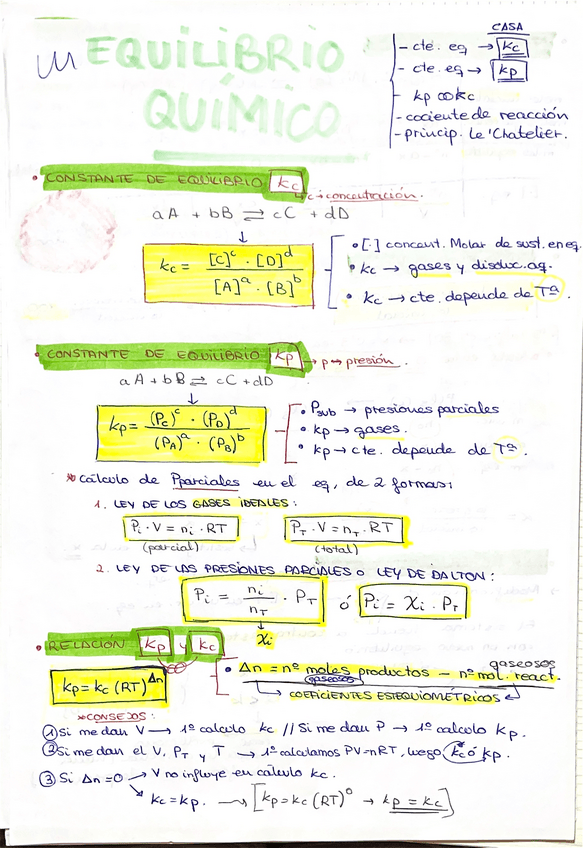 EQUILIBRIO
QUÍMICO
CASA
- cte. eq → Kc
- cte. eq → Kp
- Kp ∞ Kc
- cociente de reacción
- princip. Le'Chatelier.
• CONSTANTE DE EQUILIBRIO Kc
c → concentración.
aA + bB ⇌ cC + dD
↓
Kc = [C]^c · [D]^d / [A]^a · [B]^b
• [·] concent. Molar de sust. en eq.
• Kc → gases y disoluc. aq.
• Kc → cte. depende de Tª
• CONSTANTE DE EQUILIBRIO Kp → p ↔ presión.
aA + bB ⇌ cC + dD
↓
Kp = (Pc)^c · (PD)^d / (PA)^a · (PB)^b
• Psub → presiones parciales
• Kp → gases.
• Kp → cte. depende de Tª.
* Cálculo de Pparciales en el eq, de 2 formas:
1. LEY DE LOS GASES IDEALES:
Pi · V = ni · RT
PT · V = nT · RT
(parcial)
(total)
2. LEY DE LAS PRESIONES PARCIALES o LEY DE DALTON:
Pi = ni / nT · PT ó Pi = χi · PT
↓
χi
• RELACIÓN Kp y Kc
Kp = Kc (RT)^Δn
gaseosos
• Δn = nº moles productos − nº mol. react.
gaseosos
COEFICIENTES ESTEQUIOMÉTRICOS
* CONSEJOS:
① Si me dan V → 1º calculo Kc // Si me dan P → 1º calculo Kp.
② Si me dan el V, PT y T → 1º calculamos PV=nRT, luego Kc ó Kp.
③ Si Δn=0 → V no influye en cálculo Kc.
Kc = Kp. → [Kp = Kc (RT)^0 → Kp = Kc]